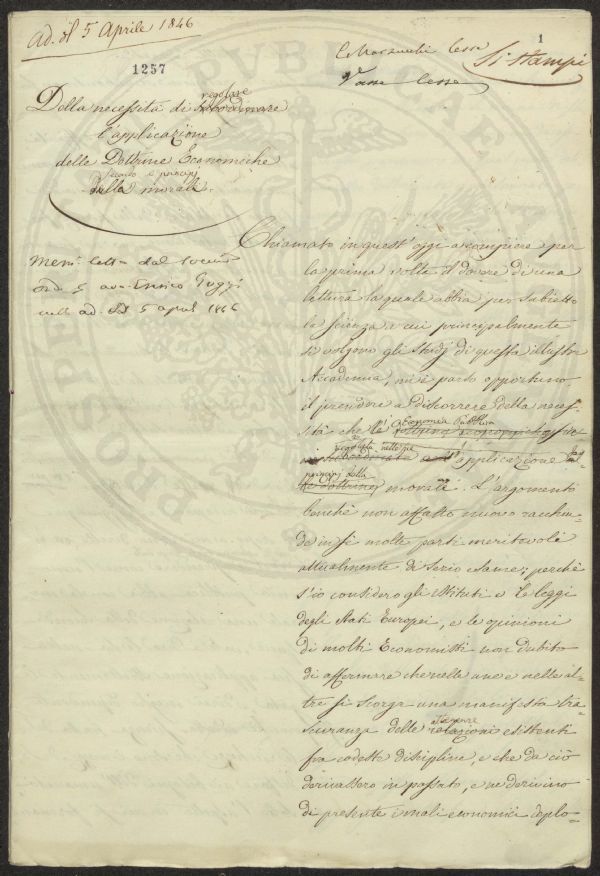 Ad. dì 5 Aprile 1846
1
1257
Si stampi
Della necessità di subordinare
regolare
l'applicazione
delle Dottrine Economiche
secondo i principj
della morale.
Mem. letta dal Socio
ord. avv. Enrico Poggi
nell' ad. del 5 april 1846
Chiamato in quest'oggi a compiere per
la prima volta il dovere di una
lettura la quale abbia per subietto
la scienza a cui principalmente
si volgono gli studj di questa illustre
Accademia, mi è parso opportuno
il prendere a discorrere della neces-
sità che l'Economia Pubblica
regolata nelle sue
l'applicazione
principj della
le dottrine morali. L'argomento
benchè non affatto nuovo racchiu-
de in se molte parti meritevoli
attualmente di serio esame; perchè
s'io considero gli istituti e le leggi
degli Stati Europei, e le opinioni
di molti Economisti non dubito
di affermare che nelle une e nelle al-
tre si scorge una manifesta tra-
scuranza delle relazioni esistenti
fra codeste discipline, e che da ciò
derivassero in passato, e ne derivino
di presente i mali economici deplo-